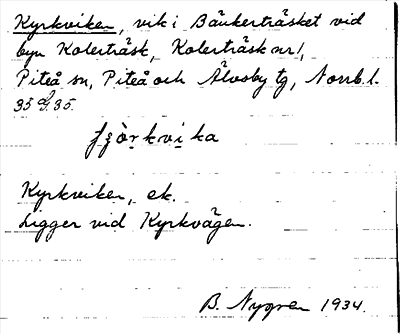 Kyrkviken, vik i Bänkerträsket vid
byn Kolerträsk, Kolerträsk nr 1,
Piteå sn, Piteå och Älvsby tg, Norrb. l.
35 35.
çörkvika
Kyrkviken, ek.
Ligger vid Kyrkvägen.
B. Nygren 1934.